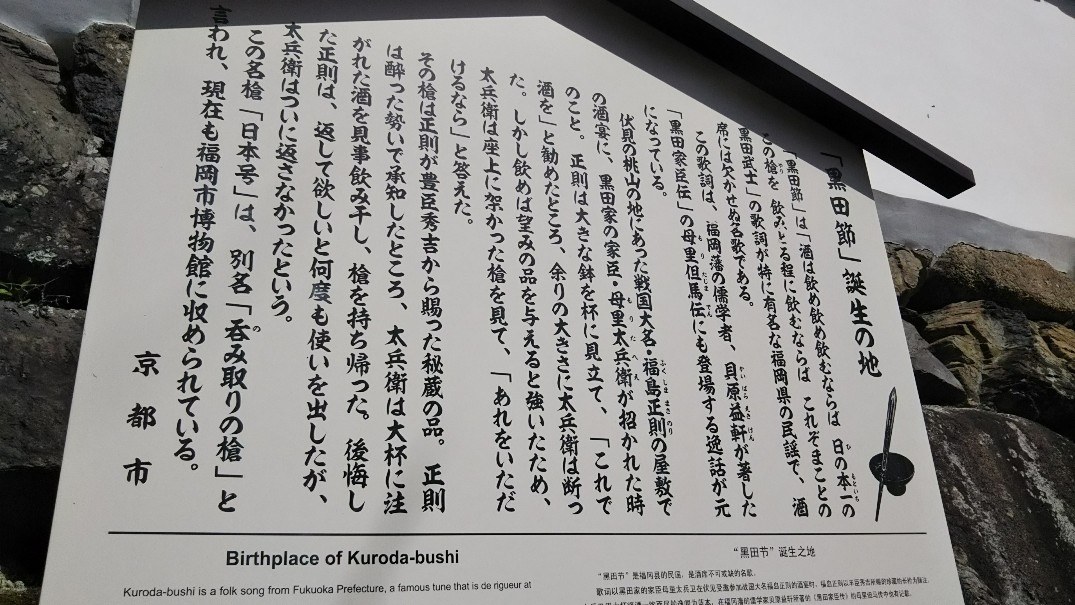 「黒田節」誕生の地
「黒田節」は「酒は飲め飲め飲むならば 日の本一の
この槍を 飲みとる程に飲むならば これぞまことの
黒田武士」の歌詞が特に有名な福岡県の民謡で、酒
席には欠かせぬ名歌である。
この歌詞は、福岡藩の儒学者、貝原益軒が著した
「黒田家臣伝」の母里但馬伝にも登場する逸話が元
になっている。
伏見の桃山の地にあった戦国大名・福島正則の屋敷で
の酒宴に、黒田家の家臣・母里太兵衛が招かれた時
のこと。正則は大きな鉢を杯に見立て、「これで
酒を」と勧めたところ、余りの大きさに太兵衛は断っ
た。しかし飲めば望みの品を与えると強いたため、
太兵衛は座上に架かった槍を見て、「あれをいただ
けるなら」と答えた。
その槍は正則が豊臣秀吉から賜った秘蔵の品。正則
は酔った勢いで承知したところ、太兵衛は大杯に注
がれた酒を見事飲み干し、槍を持ち帰った。後悔し
た正則は、返して欲しいと何度も使いを出したが、
太兵衛はついに返さなかったという。
この名槍「日本号」は、別名「呑み取りの槍」と
言われ、現在も福岡市博物館に収められている。
京都市
Birthplace of Kuroda-bushi
Kuroda-bushi is a folk song from Fukuoka Prefecture, a famous tune that is de rigueur at
“黑田节”诞生之地
“黑田节”是福冈县的民谣，是酒席不可或缺的名歌。